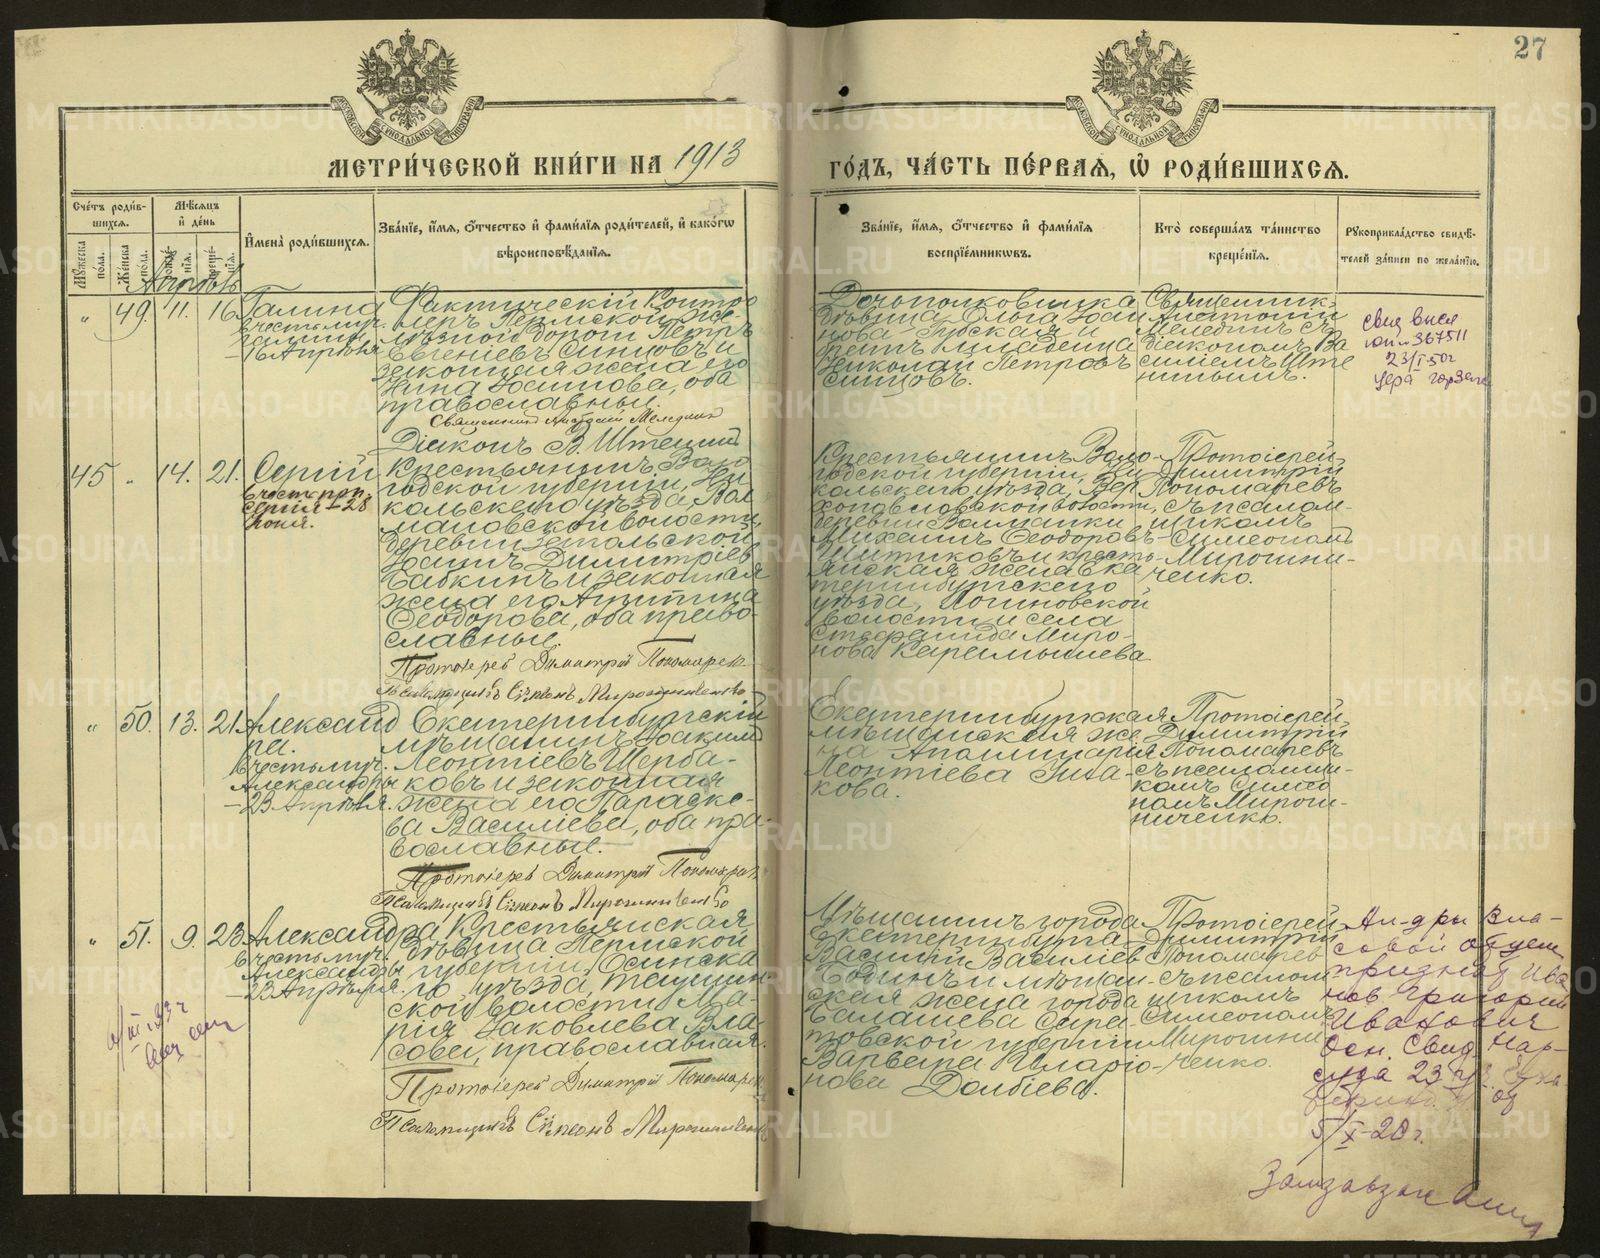 27
МОСКОВСКОЙ СѴНОДАЛЬНОЙ ТИПОГРАФІИ
МОСКОВСКОЙ СѴНОДАЛЬНОЙ ТИПОГРАФІИ
МЕТРИ́ЧЕСКОЙ КНИ́ГИ НА 1913
ГО́ДЪ, ЧА́СТЬ ПЕ́РВАЯ, Ѡ҆ РОДИ́ВШИХСЯ.
Сче́тъ роди́в-
шихся.
Му́жеска по́ла.
Же́нска по́ла.
Мѣ́сяцъ
и҆ де́нь
рожде́-
нїя.
креще́-
нїя.
И҆мена̀ роди́вшихся.
Зва́нїе, и҆́мя, ѻ҆́тчество и҆ фами́лїя роди́телей, и҆ како́гѡ
вѣроисповѣ́данїя.
Зва́нїе, и҆́мя, ѻ҆́тчество и҆ фами́лїя
воспрїе́мникѡвъ.
Кто̀ соверша́лъ та́инство
креще́нїя.
Рꙋкоприкла́дство свидѣ́-
телей за́писи по жела́нїю.
Апрѣль
" 49. 11. 16.
Галина
въ честь муч.
Галины
– 16 Апрѣля
Фактическій Контро
леръ Пермской же
лѣзной дороги Петръ
Евгеніевъ Синцовъ и
законная жена его
Нина Іоаннова, оба
православные.
Священник Анатолій Меледин
Діаконъ В. Штенин
Дочь полковника
дѣвица Ольга Іоан
нова Губская и
братъ младенца
Николай Петровъ
Синцовъ.
Священникъ
Анатолій
Меледин съ
діакономъ Ва
силіемъ Ште
нинымъ.
свид. выся
23/I-50г
45 " 14. 21.
Сергій
въ честь преп.
Сергія – 28
Іюня.
Крестьянинъ Воло
годской губерніи, Ни
кольскаго уѣзда, Вох
мановской волости,
деревни
Іоаннъ Димитріев
Бабкинъ и законная
жена его Агриппина
Ѳеодорова, оба право-
славные.
Протоіерей Димитрій Пономарев
Псаломщикъ Симеонъ Мирошниченко
Крестьянинъ Воло-
годской губерніи, Ни
кольскаго уѣзда, Вер
волости,
деревни
Михаилъ Ѳеодоровъ
Шитиковъ и кресть-
янская жена Ека
теринбургскаго
уѣзда, Логиновской
волости и села
Стефанида Миро-
нова Карамышева
Протоіерей
Димитрій
Пономаревъ
съ псалом-
щикомъ
Симеономъ
Мирошни-
ченко.
" 50. 13. 21.
Александ
ра.
въ честь муч.
Александры
– 23 Апрѣля.
Екатеринбургскій
мѣщанинъ Іоакимъ
Леонтіевъ Щерба-
ковъ и законная
жена его Параске-
ва Василіева, оба пра-
вославные.
Протоіерей Димитрій Пономарев
Псаломщикъ Симеонъ Мирошниченко
Екатеринбуржская
мѣщанская же-
на Аполлинарія
Леонтіева
кова.
Протоіерей
Димитрій
Пономаревъ
съ псаломщи-
комъ Симео
номъ Мирош-
ниченко.
" 51. 9. 23.
Александра
въ честь муч.
Александры
– 23 Апрѣля.
Крестьянская
дѣвица Пермской
губерніи, Осинска
го уѣзда,
ской волости Ма-
рія Іаковлева Вла-
сова, православная.
Протоіерей Димитрій Пономарев
Псаломщикъ Симеонъ Мирошниченко
Мѣщанинъ города
Екатеринбурга
Василій Василіев
Бодинъ и мѣщан
ская жена города
Балашева Сара-
товской губерніи
Варвара Иларіо-
нова Долбіева.
Протоіерей
Димитрій
Пономарев
съ псалом-
щикомъ
Симеоном
Мирошни
ченко.
Ал-дры Вла-
совой отцем
признан Ива
нов Григорий
Иванович
Осн. Свид. Нар-
суда 23 уч.
от
5/X-20 г.